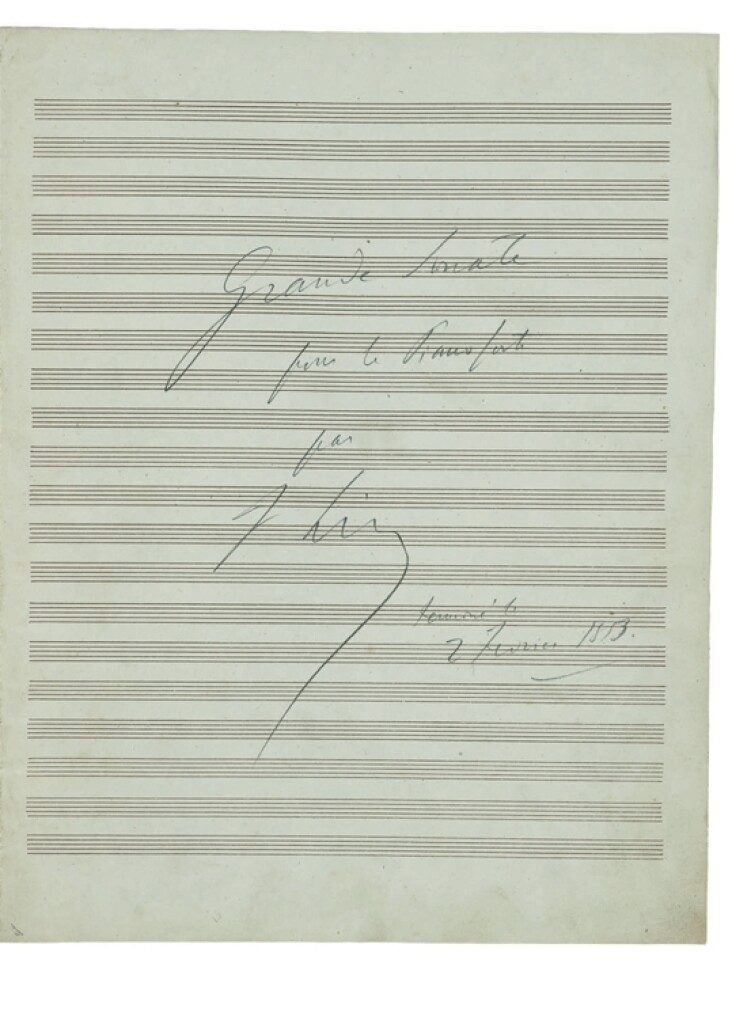 Grande Sonate
pour le Pianoforte
par
F Liszt
terminé le
2 Février 1853.